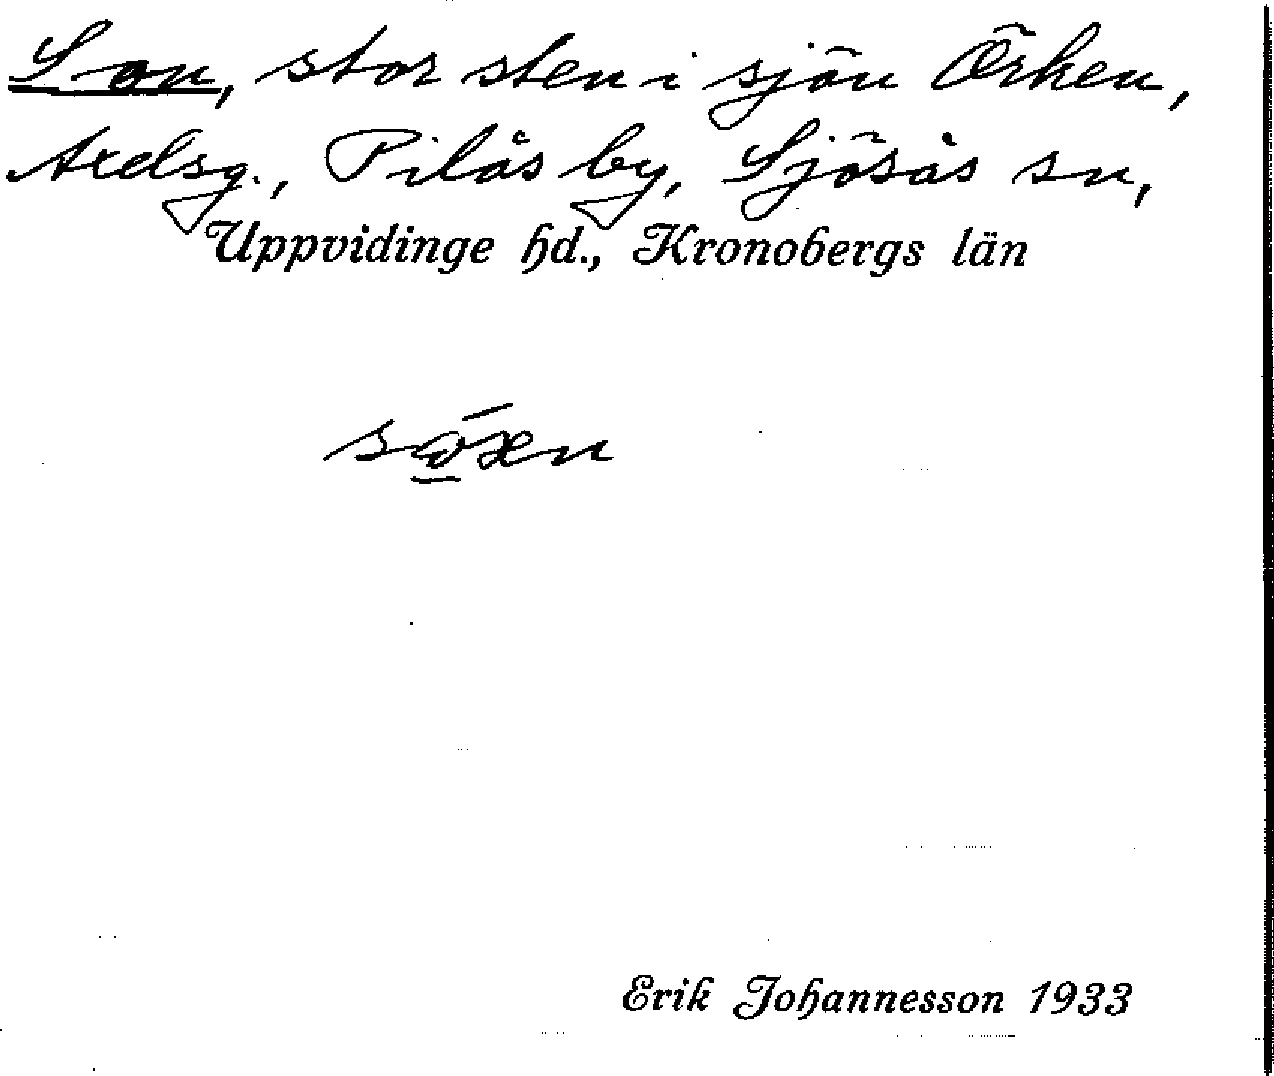 Son, stor sten i sjön Örken,
Axelsg., Pilås by, Sjösås sn,
Uppvidinge hd., Kronobergs län
Erik Johannesson 1933